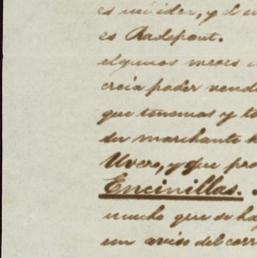 es Radepont.
algunos meses
creia poder vende
que tenemos y to
su marchante
Uvero, y que pro
Encinillas.
mucho que se ha
un aviso del corr